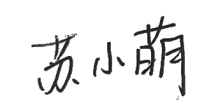 苏小萌